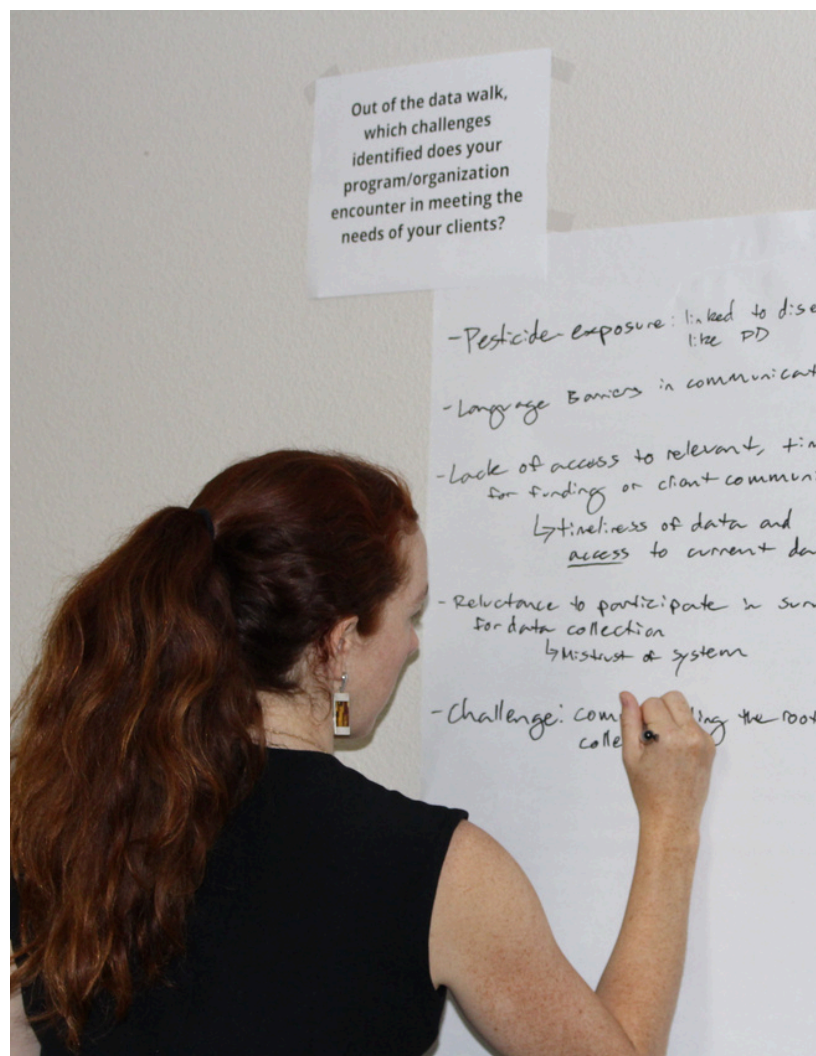 Out of the data walk,
which challenges
identified does your
program/organization
encounter in meeting the
needs of your clients?
- Pesticide exposure: linked to
like PD
- Language Barriers in
- Lack of access to relevant,
for funding or client
↳ timeliness of data and
access to current
- Reluctance to participate in
for data collection
↳ Mistrust of system
- Challenge: the